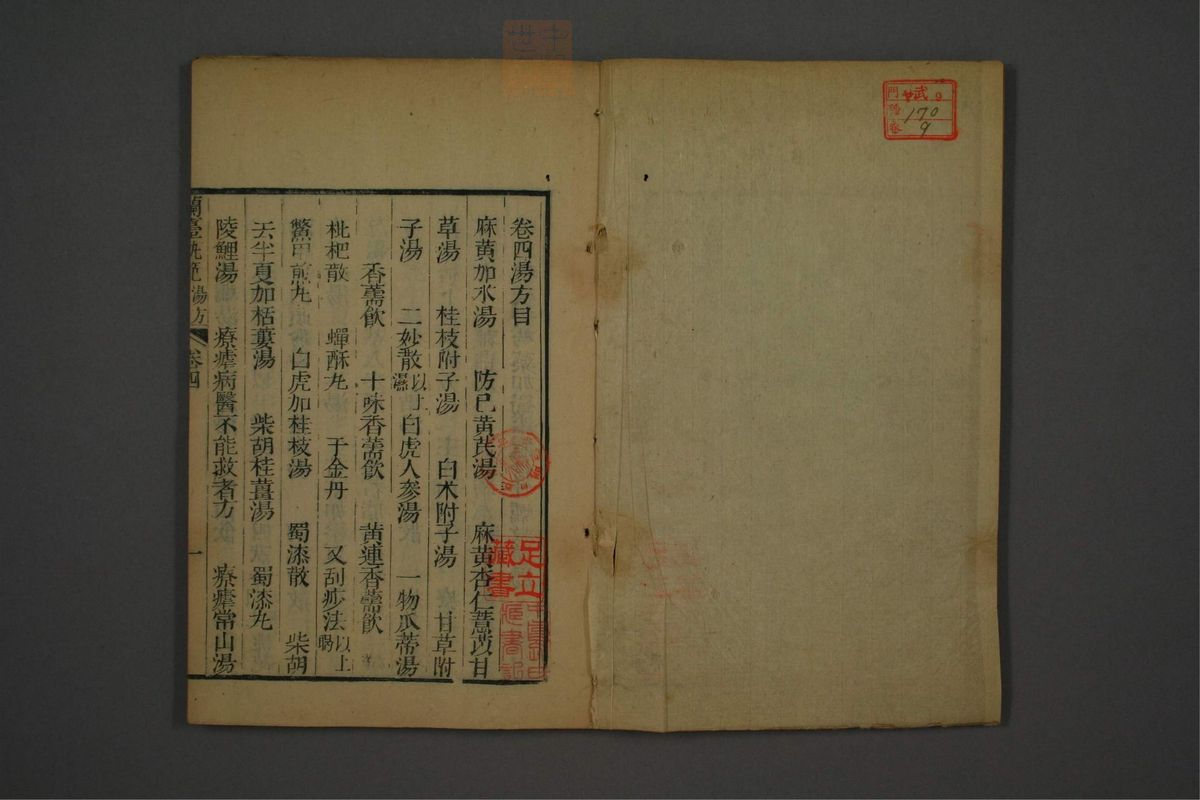 卷四湯方目
麻黃加朮湯　防已黃芪湯　麻黃杏仁薏苡甘
草湯　桂枝附子湯　白术附子湯　甘草附
子湯　二妙散以上濕　白虎人參湯　一物瓜蒂湯
香薷飲　十味香薷飲　黃連香薷飲
枇杷散　蟬酥丸　于金丹　又刮痧法以上暍
鱉甲煎丸　白虎加桂枝湯　蜀漆散　柴胡
去半夏加栝蔞湯　柴胡桂薑湯　蜀漆丸
陵鯉湯　療瘧病醫不能救者方　療瘧常山湯
蘭臺軌範　湯方　卷四　一
足立藏書
170
9